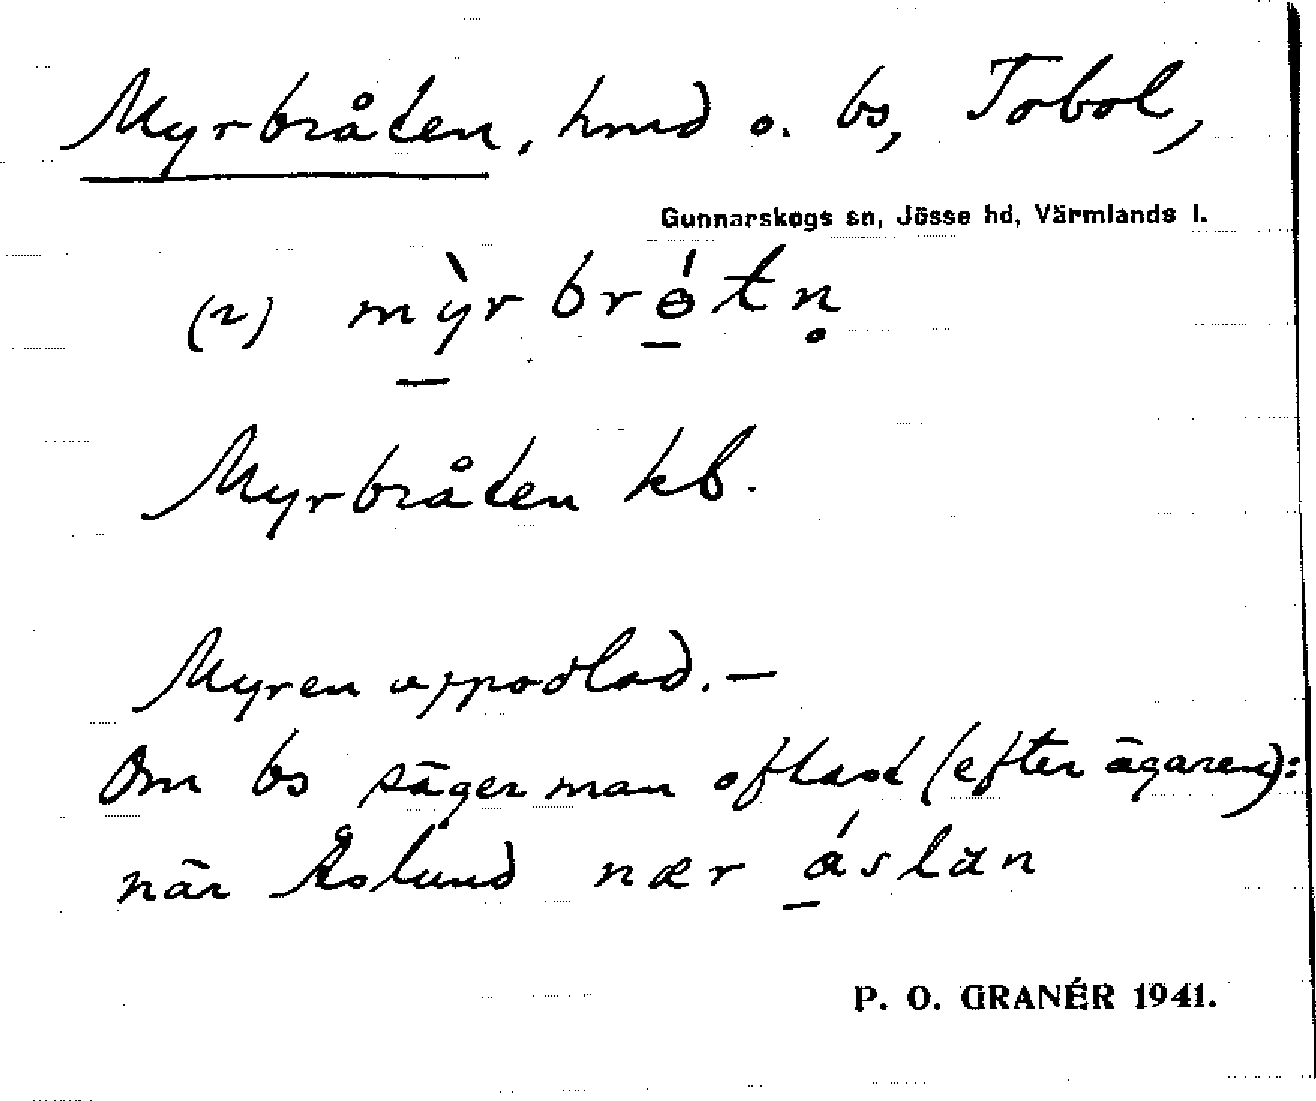 Myrbråten, hmd o. bs, Tobol,
Gunnarskogs sn, Jösse hd, Värmlands l.
(2) mỳ̠rbrɵ̠́tn̥
Myrbråten kb.
Myren uppodlad. –
Om bs säger man oftast (efter ägaren):
när Åslund nær á̠slan
P. O. GRANÉR 1941.